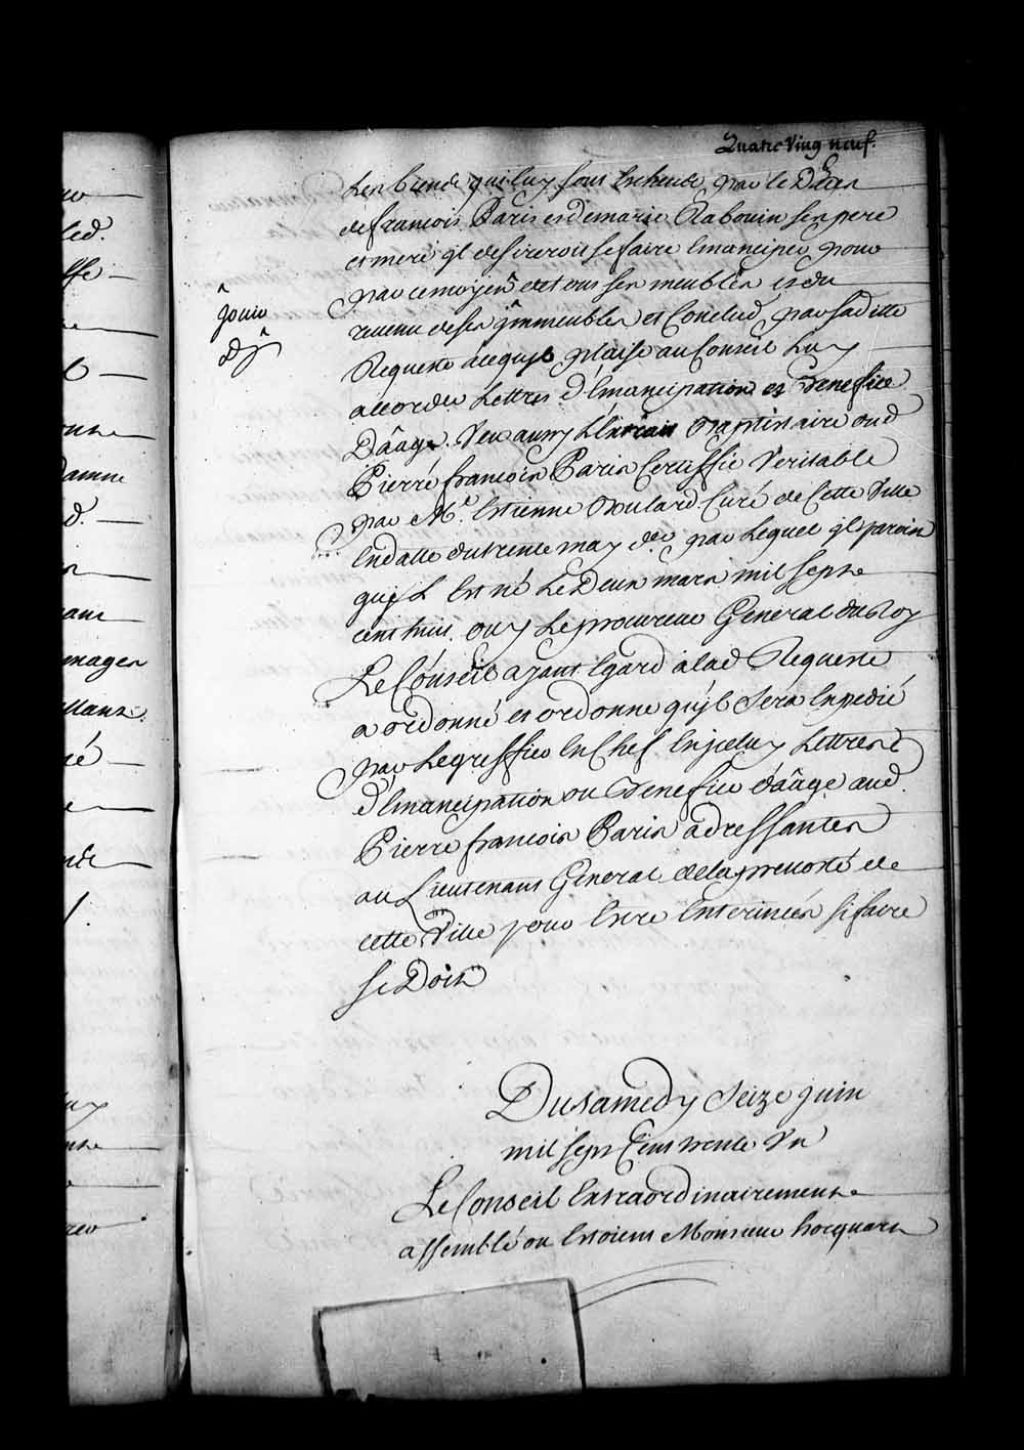 Quatre Ving neuf.
Les biens qui luy sont Escheus par le Deces
de francois Paris et de marie Rabouin ses pere
et mere jl desireroit se faire Emanciper pour
par ce moyen de tous ses meubles et du
jouir
revenu de ses jmmeubles et Conclud par sa ditte
d
Requeste a ce qu'jl plaise au Conseil Luy
accorder Lettres d'Emancipation et Benefice
D'âage. Veu aussy L'Extrait Baptistaire dud
Pierre francois Paris Certiffié Veritable
par Mr. Estienne Boulard Curé de Cette Ville
En datte du trente may der. par Lequel jl paroist
qu'jl Est né Le Deux mars mil sept
cent huit. Ouy Le procureur General du Roy
Le Conseil ayant Egard a lad Requeste
a ordonné et ordonne qu'jl sera Expedié
par Le greffier En Chef En jceluy Lettres
d'Emancipation ou Benefice d'âage aud.
Pierre francois Paris adressantes
au Lieutenant General de la prevosté de
cette Ville pour Estre Enterinées si faire
se Doit
Du samedy Seize juin
mil sept Cent trente Un
Le Conseil Extraordinairement
assemblé ou Estoient Monsieur hocquart